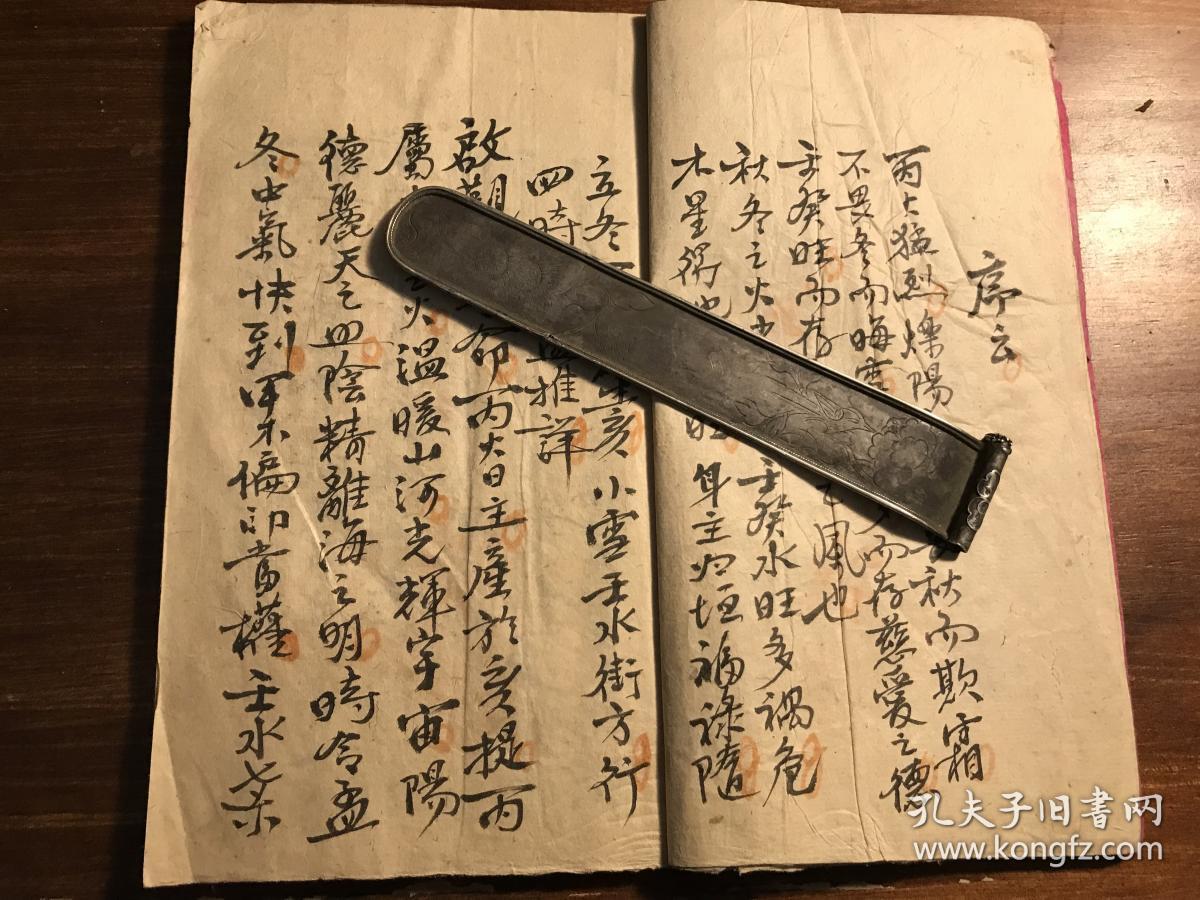 序云
丙火猛烈燥陽 秋而欺霜
不畏冬而晦雪 而存慈愛之德
壬癸旺而存 風也
秋冬之火 壬癸水旺多禍危
木星得也 旺 身主归垣福禄随
立冬 亥 小雪壬水街方行
四時 推詳
啟觀 命丙火日主産於亥提丙
屬 火溫暖山河光輝宇宙陽
德麗天之 陰精離海之明時令孟
冬中氣快到甲木偏印当權壬水七杀
孔夫子旧書网
www.kongfz.com